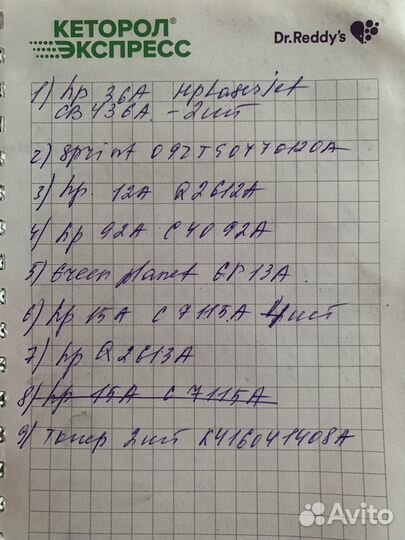 КЕТОРОЛ®
ЭКСПРЕСС
Dr.Reddy's
1) hp 36A HpLaserjet
CB436A. - 2шт
2) Sprint 092TS0470120A
3) hp. 12A Q2612A
4) hp 92A C4092A
5) Green planet GP13A.
6) hp 15A C7115A 4шт
7) hp Q2613A
8) hp 15A C7115A
9) Тонер 2шт K416041408A
Avito